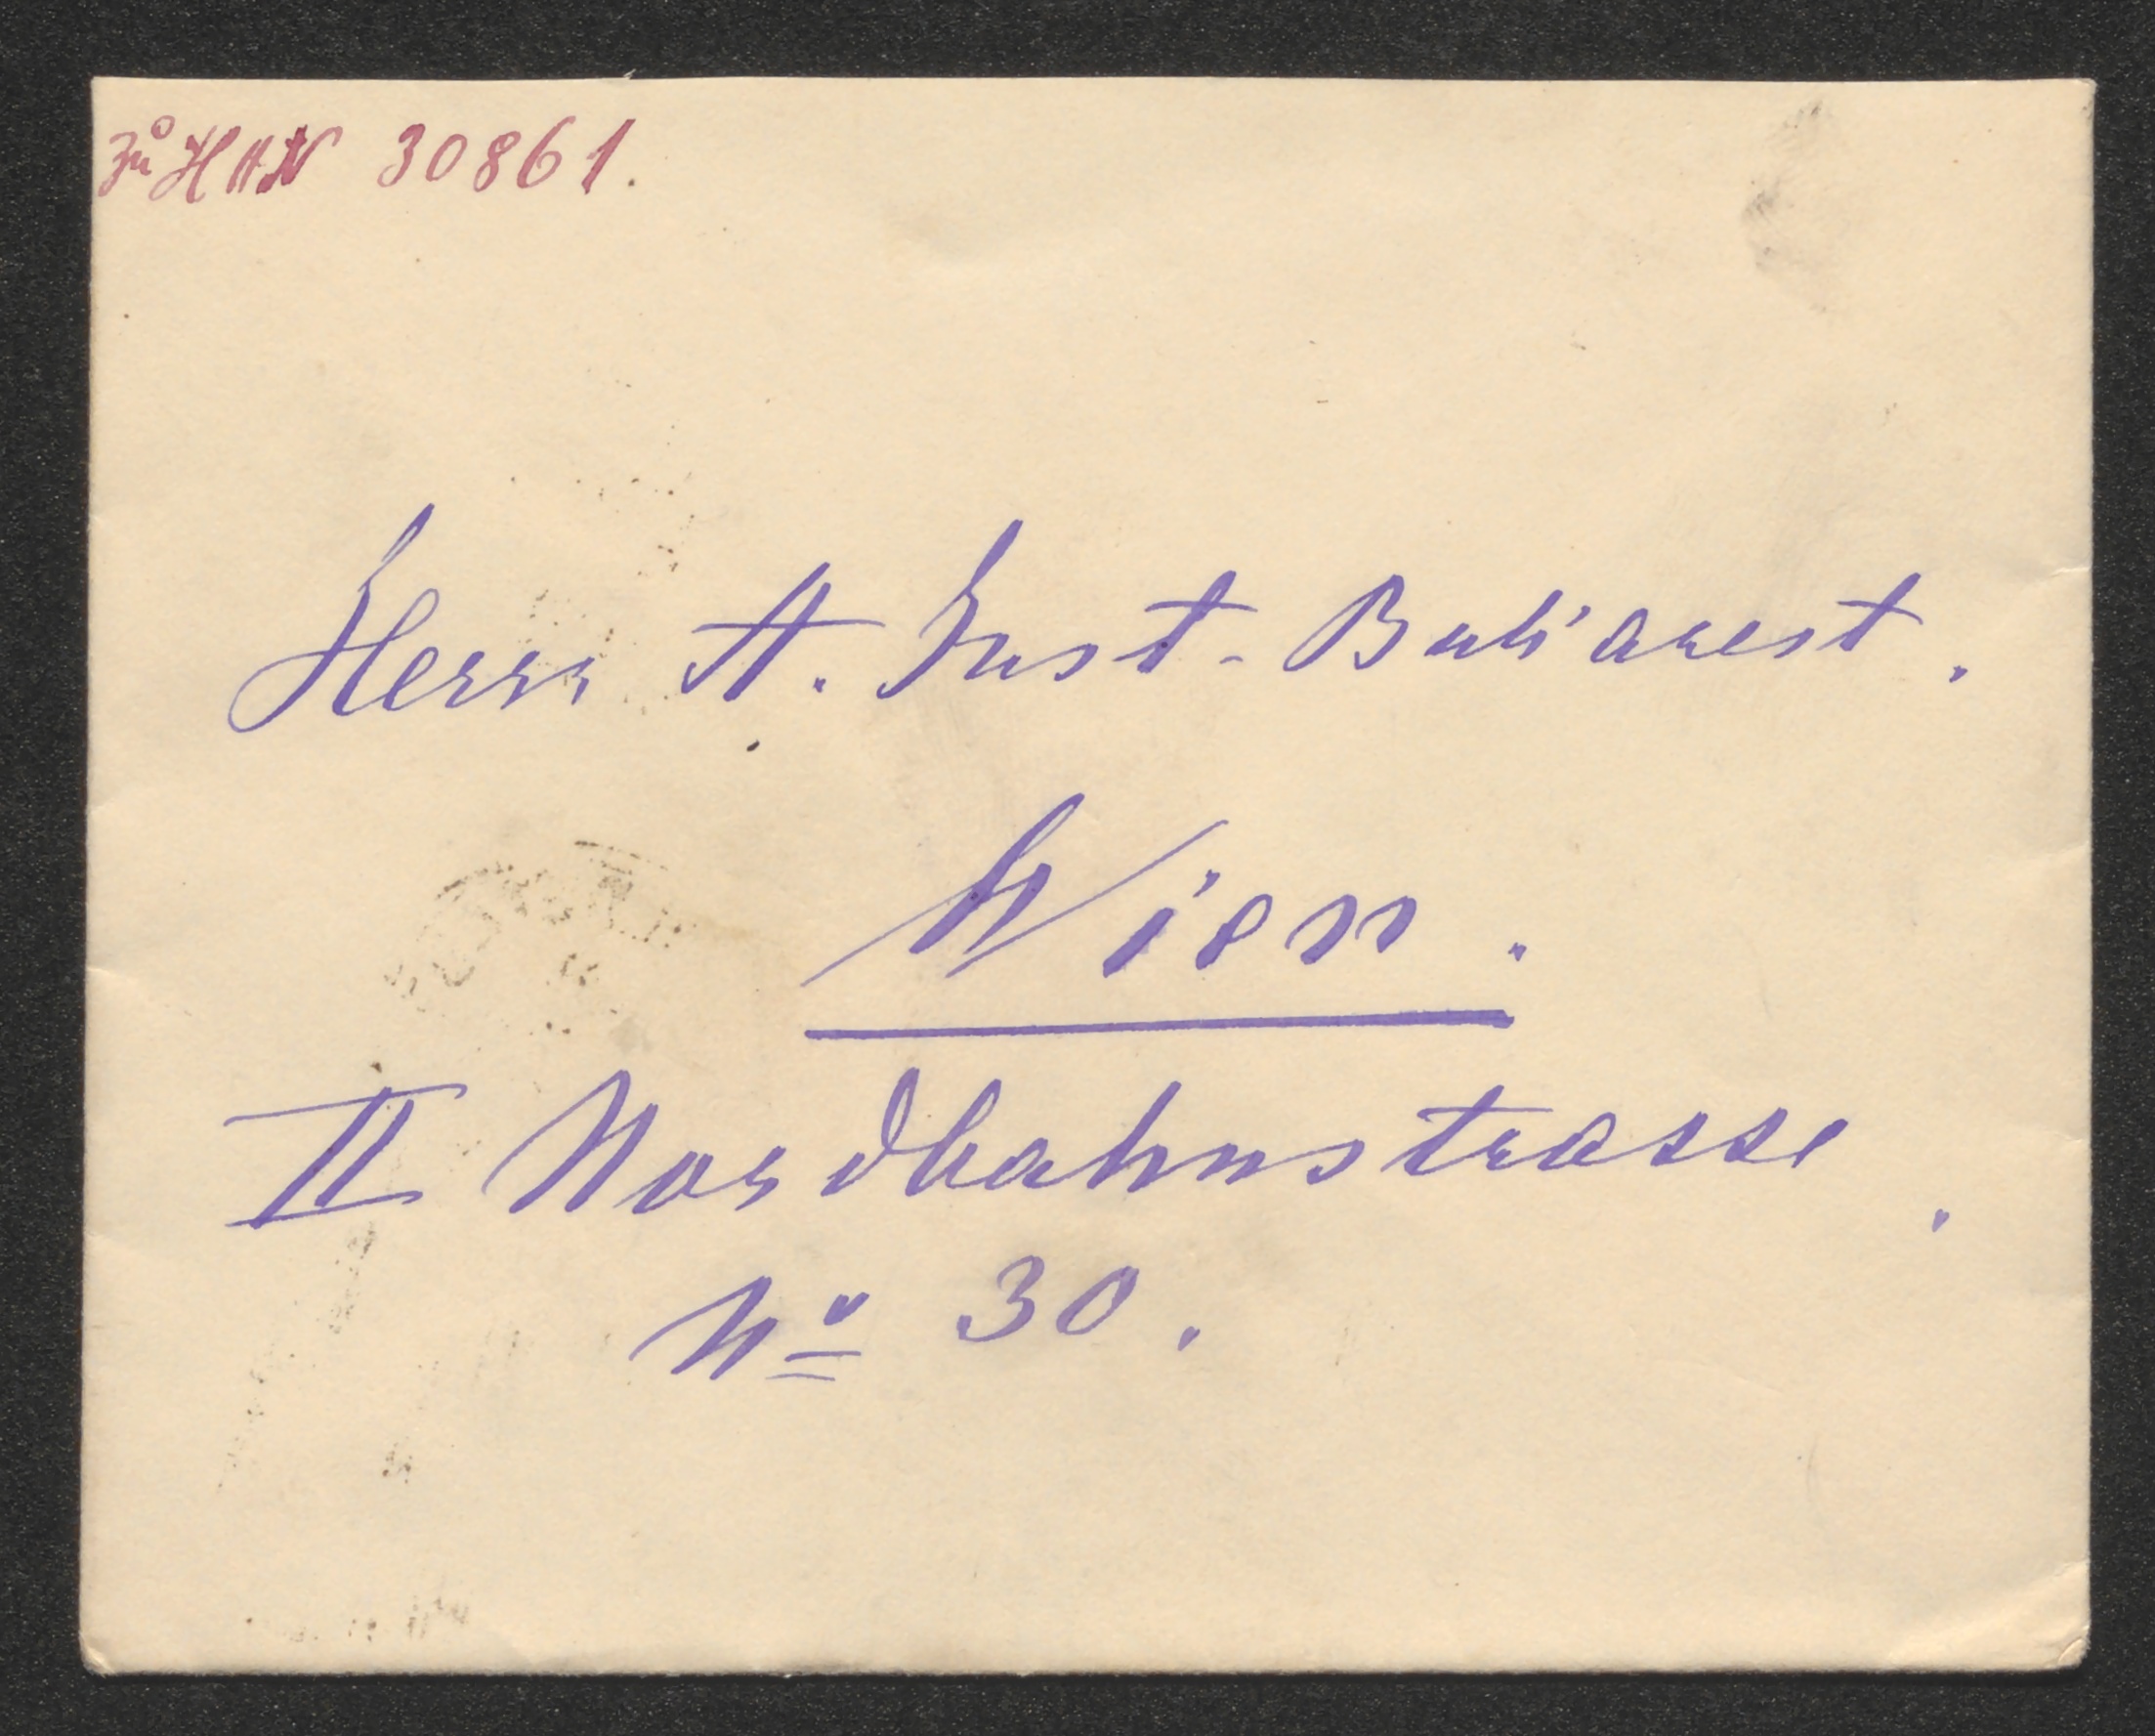 zu HAN 30861.
Herr A. Just-Bukarest.
Wien.
II Nordbahnstrasse.
No 30.